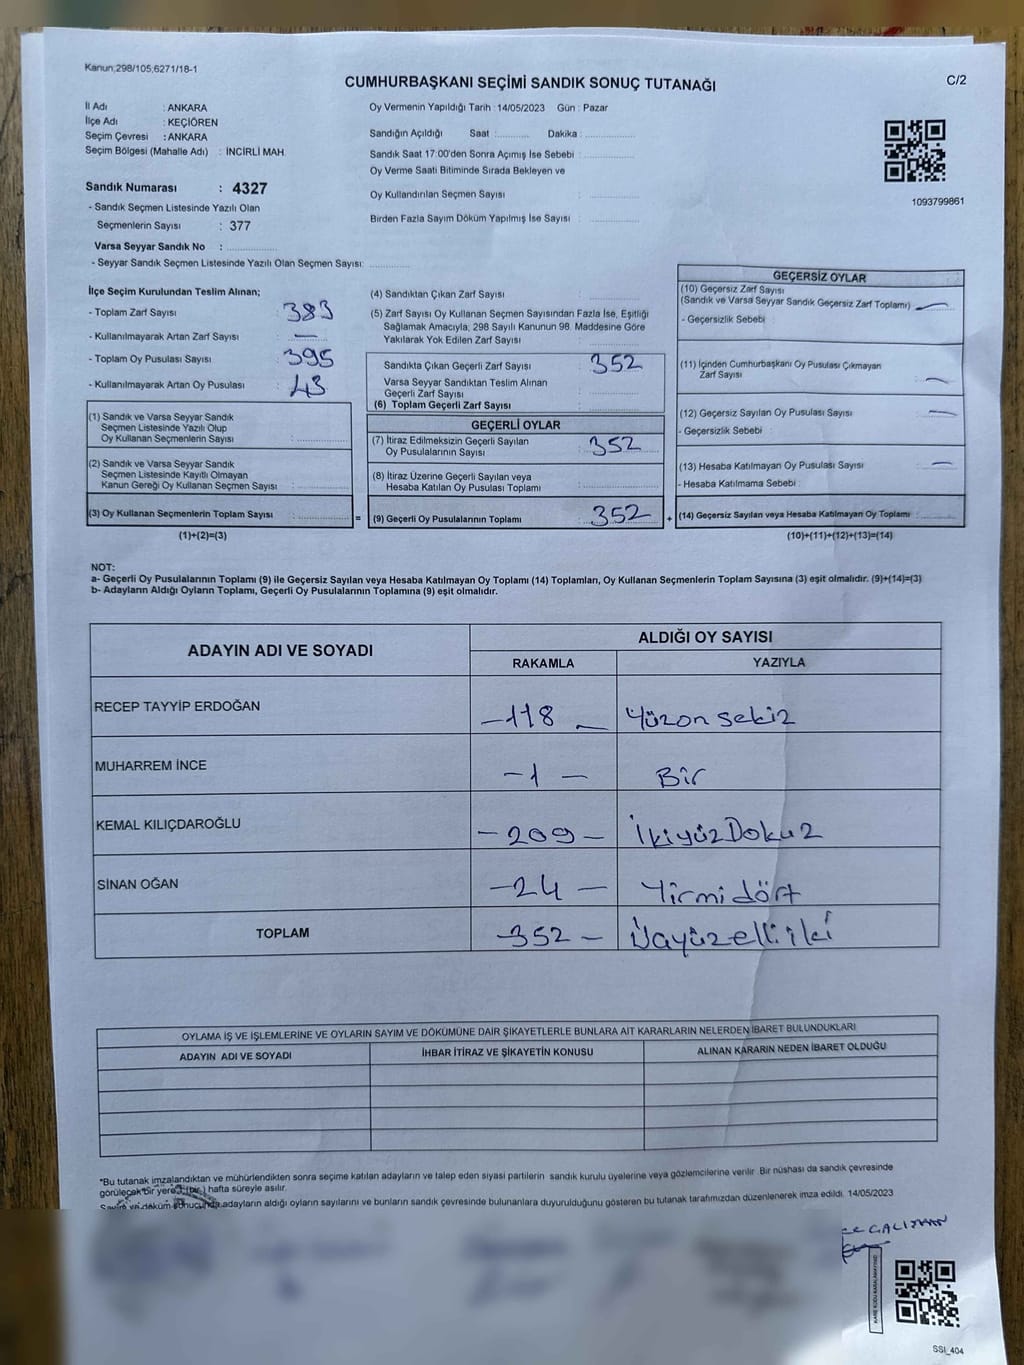 Kanun;298/105,6271/18-1
C/2
CUMHURBAŞKANI SEÇİMİ SANDIK SONUÇ TUTANAĞI
İl Adı : ANKARA
İlçe Adı : KEÇİÖREN
Seçim Çevresi : ANKARA
Seçim Bölgesi (Mahalle Adı) : İNCİRLİ MAH.
Sandık Numarası : 4327
- Sandık Seçmen Listesinde Yazılı Olan
Seçmenlerin Sayısı : 377
Varsa Seyyar Sandık No :
- Seyyar Sandık Seçmen Listesinde Yazılı Olan Seçmen Sayısı:
Oy Vermenin Yapıldığı Tarih : 14/05/2023 Gün : Pazar
Sandığın Açıldığı Saat : Dakika :
Sandık Saat 17:00'den Sonra Açımış İse Sebebi :
Oy Verme Saati Bitiminde Sırada Bekleyen ve
Oy Kullandırılan Seçmen Sayısı :
Birden Fazla Sayım Döküm Yapılmış İse Sayısı :
1093799861
İlçe Seçim Kurulundan Teslim Alınan;
- Toplam Zarf Sayısı : 383
- Kullanılmayarak Artan Zarf Sayısı : —
- Toplam Oy Pusulası Sayısı : 395
- Kullanılmayarak Artan Oy Pusulası : 43
(1) Sandık ve Varsa Seyyar Sandık
Seçmen Listesinde Yazılı Olup
Oy Kullanan Seçmenlerin Sayısı :
(2) Sandık ve Varsa Seyyar Sandık
Seçmen Listesinde Kayıtlı Olmayan
Kanun Gereği Oy Kullanan Seçmen Sayısı :
(3) Oy Kullanan Seçmenlerin Toplam Sayısı : =
(1)+(2)=(3)
(4) Sandıktan Çıkan Zarf Sayısı :
(5) Zarf Sayısı Oy Kullanan Seçmen Sayısından Fazla İse, Eşitliği
Sağlamak Amacıyla; 298 Sayılı Kanunun 98. Maddesine Göre
Yakılarak Yok Edilen Zarf Sayısı :
Sandıkta Çıkan Geçerli Zarf Sayısı : 352
Varsa Seyyar Sandıktan Teslim Alınan
Geçerli Zarf Sayısı :
(6) Toplam Geçerli Zarf Sayısı :
GEÇERLİ OYLAR
(7) İtiraz Edilmeksizin Geçerli Sayılan
Oy Pusulalarının Sayısı : 352
(8) İtiraz Üzerine Geçerli Sayılan veya
Hesaba Katılan Oy Pusulası Toplamı :
(9) Geçerli Oy Pusulalarının Toplamı : 352 +
GEÇERSİZ OYLAR
(10) Geçersiz Zarf Sayısı
(Sandık ve Varsa Seyyar Sandık Geçersiz Zarf Toplamı) : —
- Geçersizlik Sebebi :
(11) İçinden Cumhurbaşkanı Oy Pusulası Çıkmayan
Zarf Sayısı : —
(12) Geçersiz Sayılan Oy Pusulası Sayısı : —
- Geçersizlik Sebebi :
(13) Hesaba Katılmayan Oy Pusulası Sayısı : —
- Hesaba Katılmama Sebebi :
(14) Geçersiz Sayılan veya Hesaba Katılmayan Oy Toplamı :
(10)+(11)+(12)+(13)=(14)
NOT:
a- Geçerli Oy Pusulalarının Toplamı (9) ile Geçersiz Sayılan veya Hesaba Katılmayan Oy Toplamı (14) Toplamları, Oy Kullanan Seçmenlerin Toplam Sayısına (3) eşit olmalıdır. (9)+(14)=(3)
b- Adayların Aldığı Oyların Toplamı, Geçerli Oy Pusulalarının Toplamına (9) eşit olmalıdır.
ADAYIN ADI VE SOYADI ALDIĞI OY SAYISI
RAKAMLA YAZIYLA
RECEP TAYYİP ERDOĞAN -118- Yüzon sekiz
MUHARREM İNCE -1- Bir
KEMAL KILIÇDAROĞLU -209- İkiyüzDokuz
SİNAN OĞAN -24- Yirmi dört
TOPLAM -352- Üçyüzelli iki
OYLAMA İŞ VE İŞLEMLERİNE VE OYLARIN SAYIM VE DÖKÜMÜNE DAİR ŞİKAYETLERLE BUNLARA AİT KARARLARIN NELERDEN İBARET BULUNDUKLARI
ADAYIN ADI VE SOYADI İHBAR İTİRAZ VE ŞİKAYETİN KONUSU ALINAN KARARIN NEDEN İBARET OLDUĞU
*Bu tutanak imzalandıktan ve mühürlendikten sonra seçime katılan adayların ve talep eden siyasi partilerin sandık kurulu üyelerine veya gözlemcilerine verilir. Bir nüshası da sandık çevresinde
görülecek bir yere 1 (bir) hafta süreyle asılır.
Sayım ve döküm sonucunda adayların aldığı oyların sayılarını ve bunların sandık çevresinde bulunanlara duyurulduğunu gösteren bu tutanak tarafımızdan düzenlenerek imza edildi. 14/05/2023
SSI_404